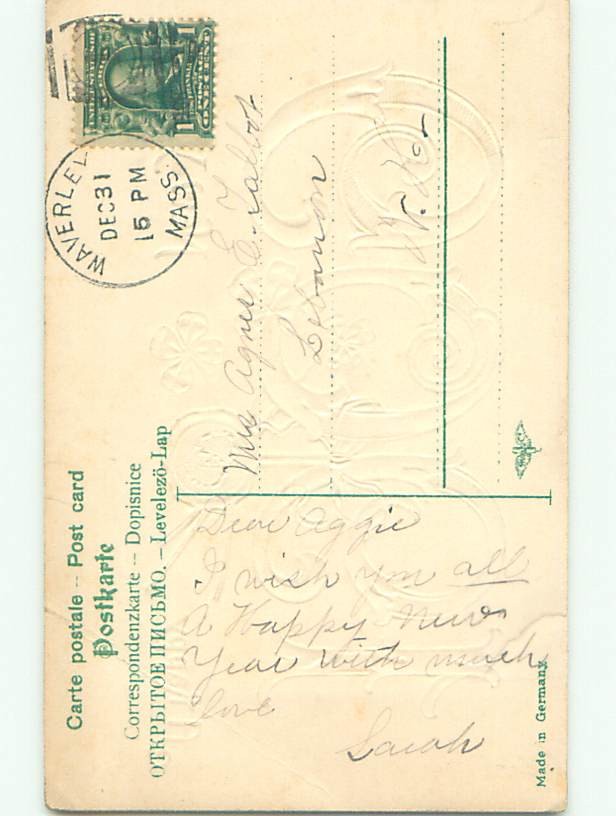 Carte postale -- Post card
Postkarte
Correspondenzkarte -- Dopisnice
ОТКРЫТОЕ ПИСЬМО. – Levelező-Lap
WAVERLEY
DEC 31
15 PM
MASS.
ONE CENT
1 1
Agnes E. Talbot
Lebanon
Dear Aggie
I wish you all
A Happy New
Year with much
love
Sarah
Made in Germany